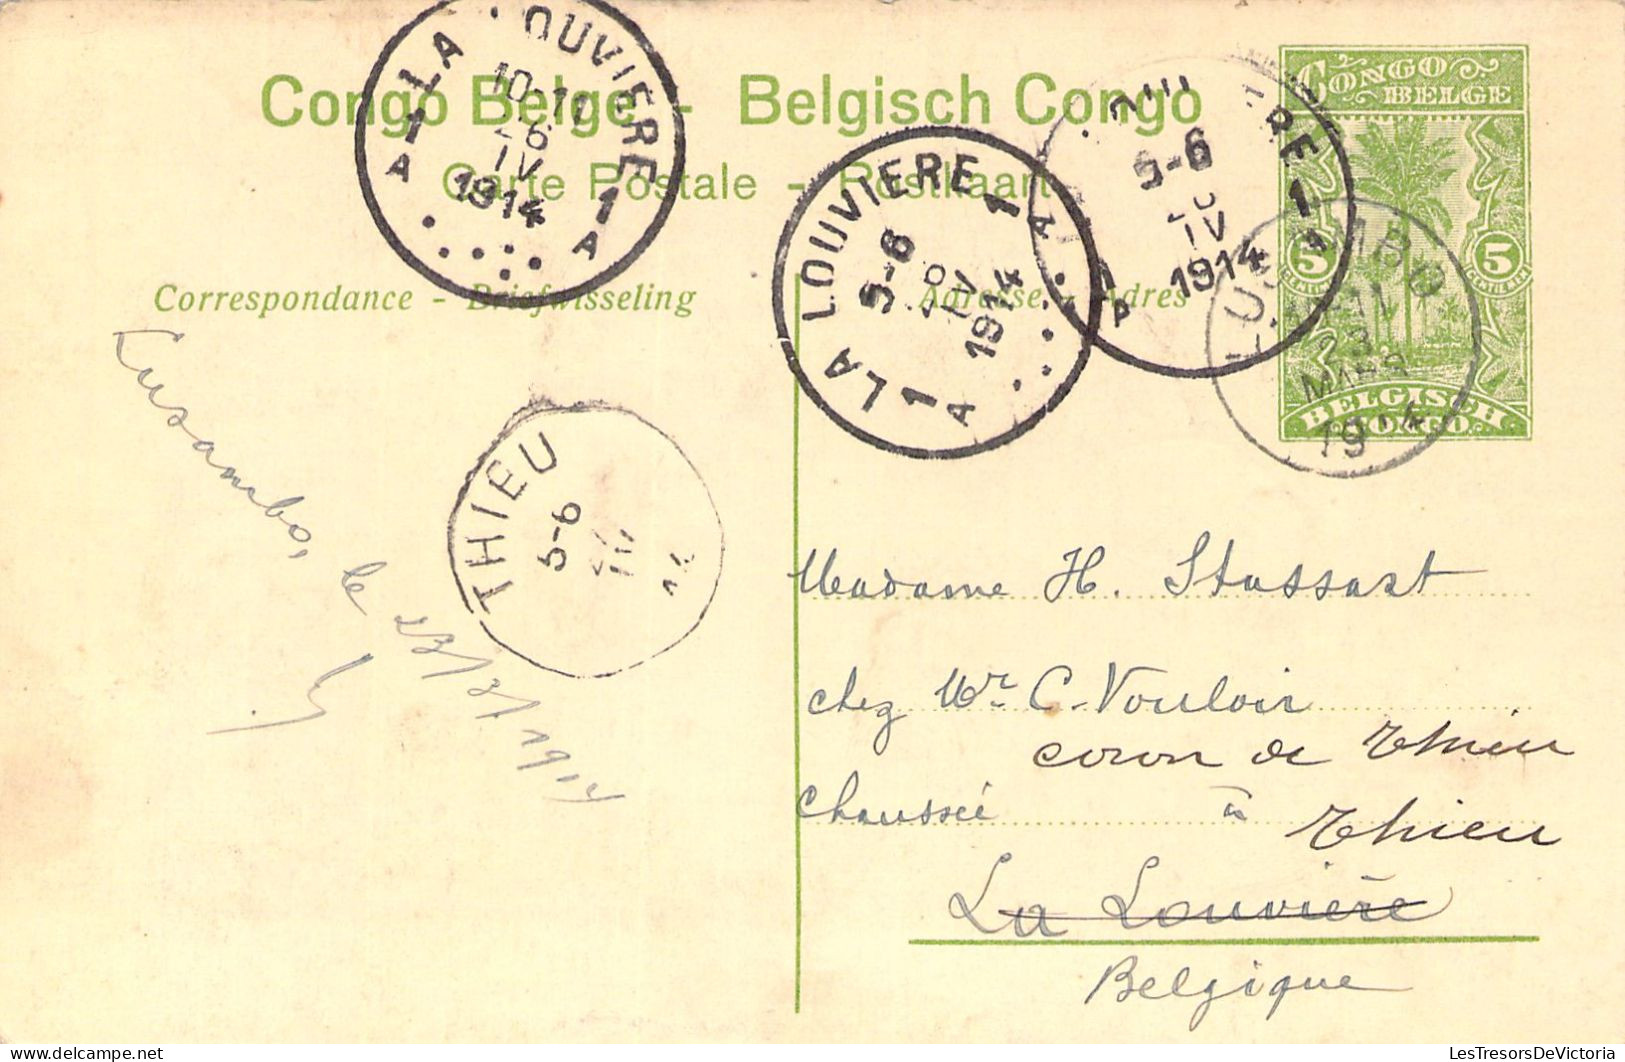 Congo Belge - Belgisch Congo
Carte Postale - Postkaart
Correspondance - Briefwisseling
Adresse - Adres
CONGO
BELGE
5 5
BELGISCH
CONGO
LA LOUVIERE
10-11
6
IV
1914
1 1
A A
LA LOUVIERE
5-6
IV
1914
1 1
A A
5-6
IV
1914
1 1
A
LUSAMBO
23
MARS
1914
THIEU
5-6
Lusambo, le 23/3/1914
Madame H. Stassart
chez Mr. C. Vouloir
coron de Thieu
Chaussée à Thieu
La Louvière
Belgique
LesTresorsDeVictoria